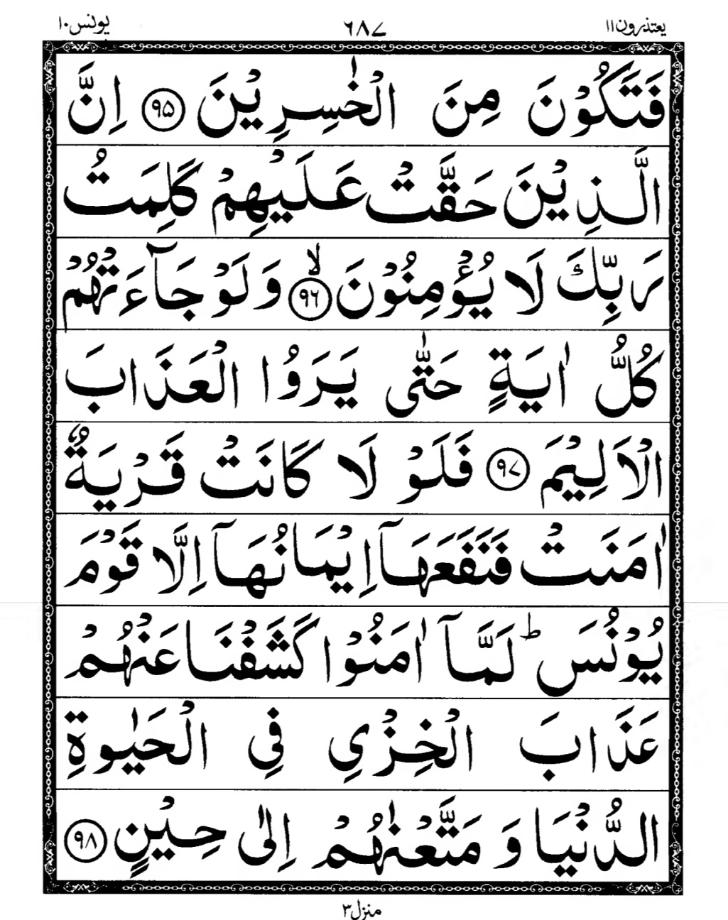 یعتذرون۱۱ ۶۸۷ یونس۱۰
فَتَكُوْنَ مِنَ الْخٰسِرِيْنَ ﴿۹۵﴾ اِنَّ
الَّذِيْنَ حَقَّتْ عَلَيْهِمْ كَلِمَتُ
رَبِّكَ لَا يُؤْمِنُوْنَ ۙ﴿۹۶﴾ وَلَوْ جَآءَتْهُمْ
كُلُّ اٰيَةٍ حَتّٰى يَرَوُا الْعَذَابَ
الْاَلِيْمَ ﴿۹۷﴾ فَلَوْ لَا كَانَتْ قَرْيَةٌ
اٰمَنَتْ فَنَفَعَهَآ اِيْمَانُهَآ اِلَّا قَوْمَ
يُوْنُسَ ؕ لَمَّآ اٰمَنُوْا كَشَفْنَا عَنْهُمْ
عَذَابَ الْخِزْىِ فِى الْحَيٰوةِ
الدُّنْيَا وَ مَتَّعْنٰهُمْ اِلٰى حِيْنٍ ﴿۹۸﴾
منزل۳